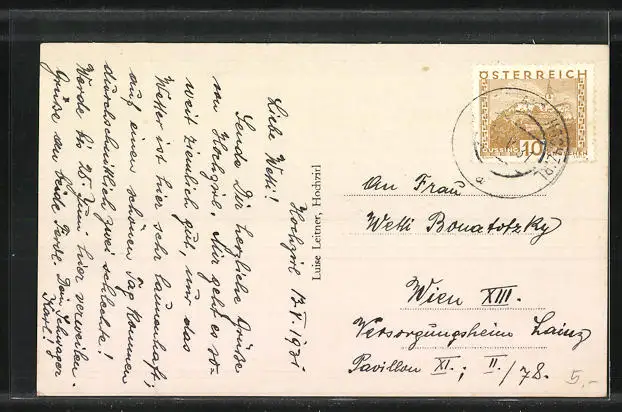 Hochzirl 13.V.1931
Liebe Weti!
Sende Dir herzliche Grüße
von Hochzirl. Mir geht es so-
weit ziemlich gut, nur das
Wetter ist hier sehr launenhaft,
auf einen schönen Tag kommen
durchschnittlich zwei schlechte!
Werde bis 25 Juni hier verweilen.
Grüße an beide Dein Schwager
Karl!
Luise Leitner, Hochzirl
ÖSTERREICH
GÜSSING 10
ZIRL
An Frau
Weti Bonatotzky
Wien XIII.
Versorgungsheim Lainz
Pavillon XI.; II./78.
5,-